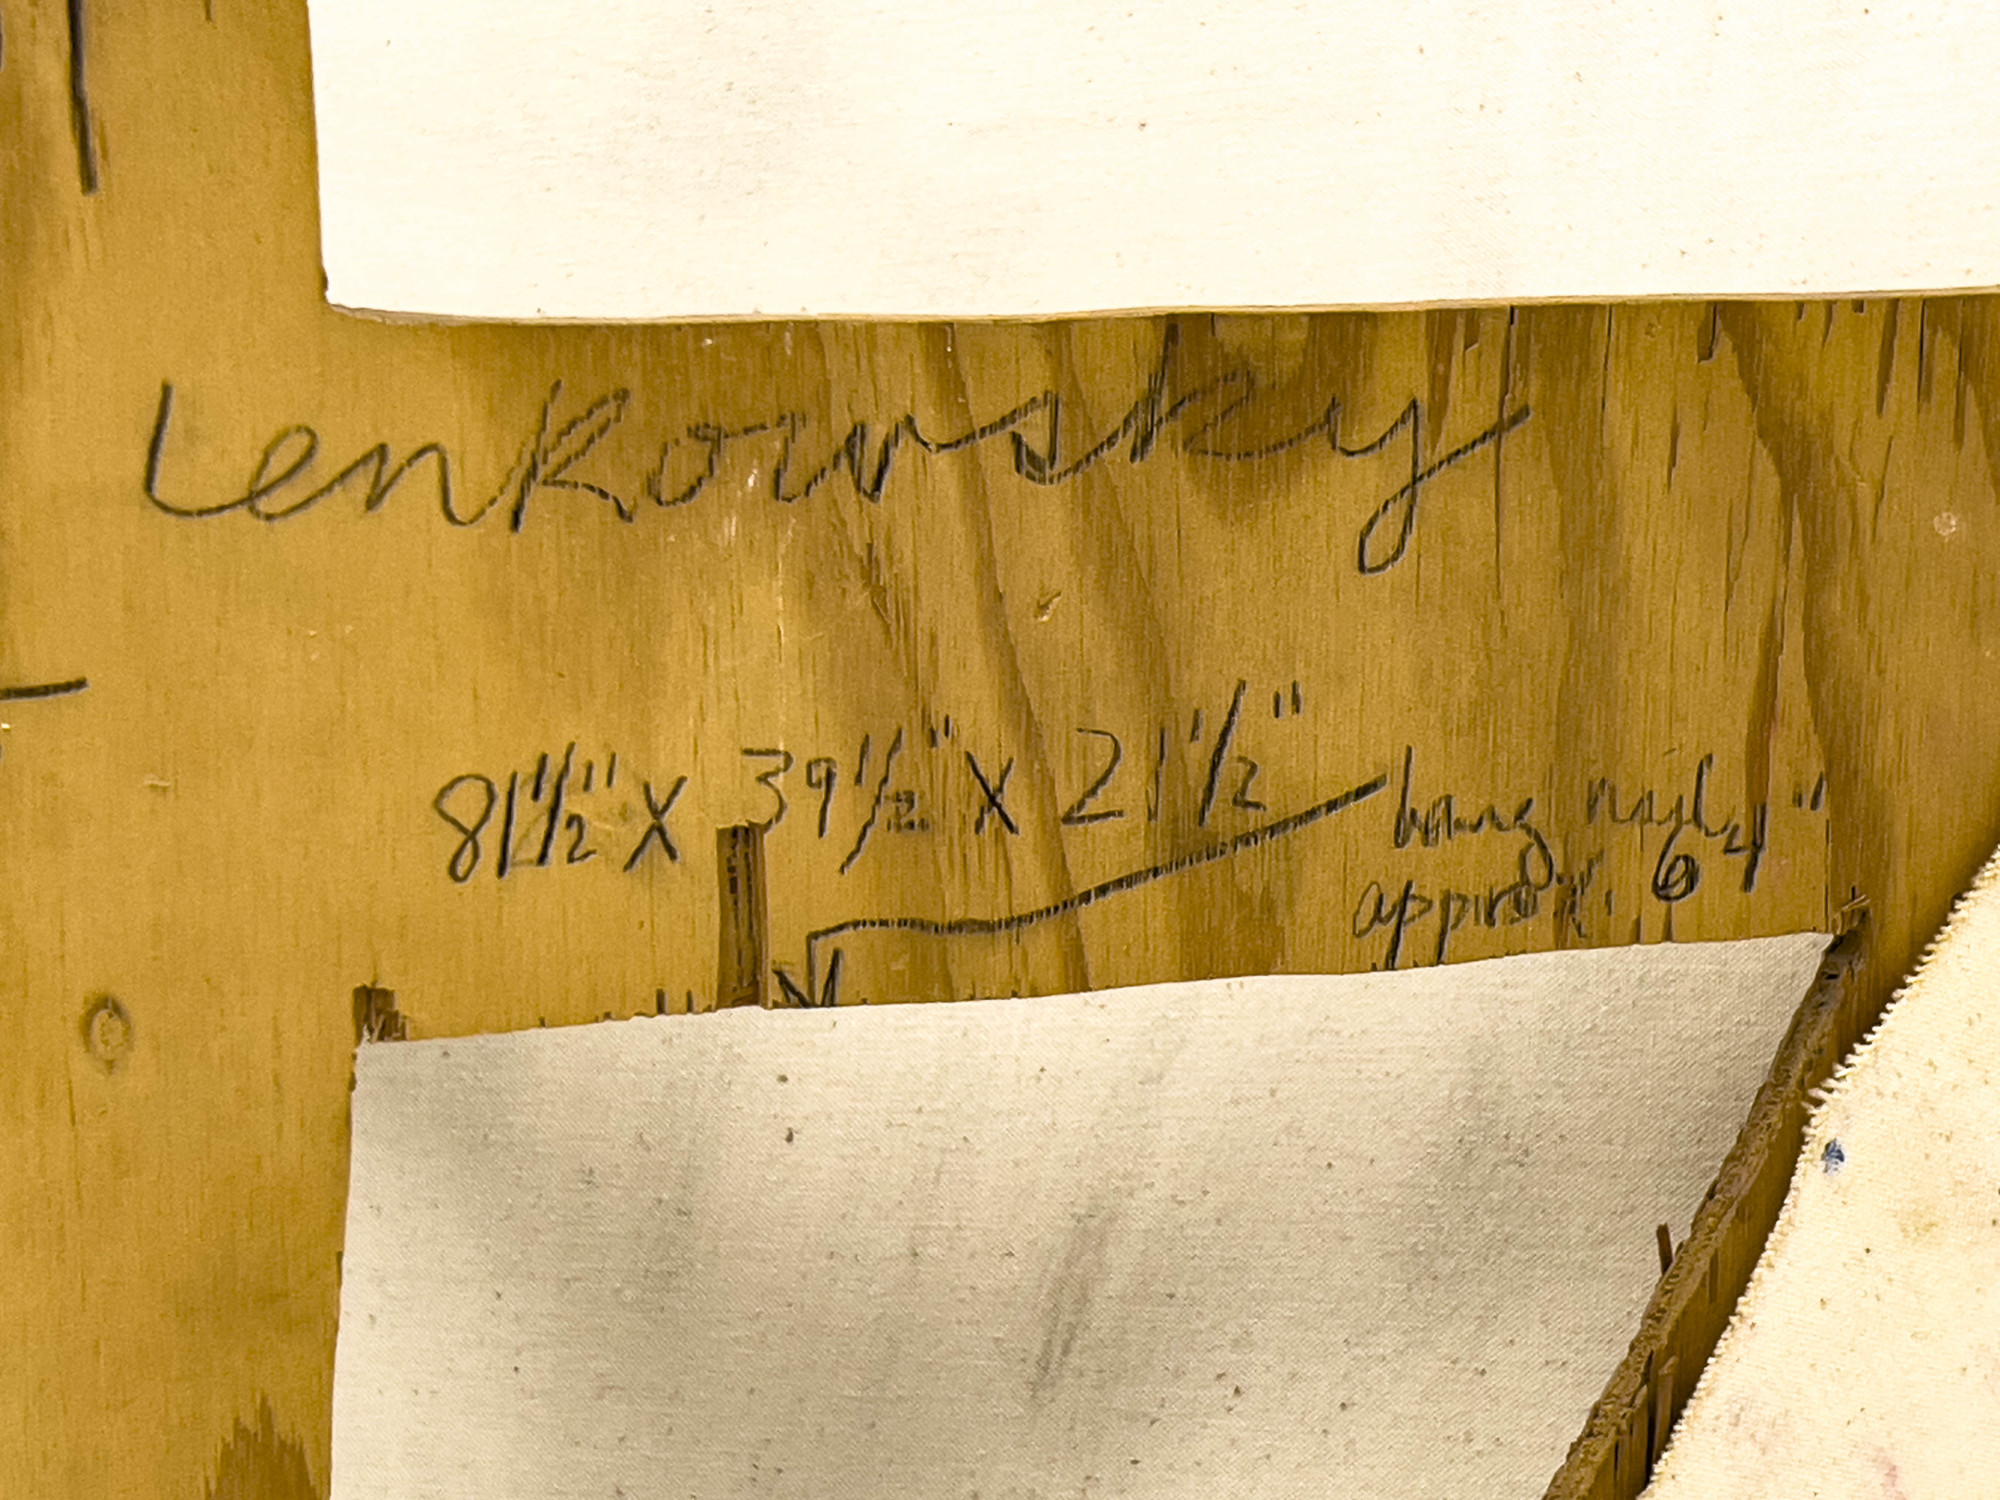 Lenkowsky
81 1/2" X 39 1/2" X 21 1/2"
hang nail
approx. 64"